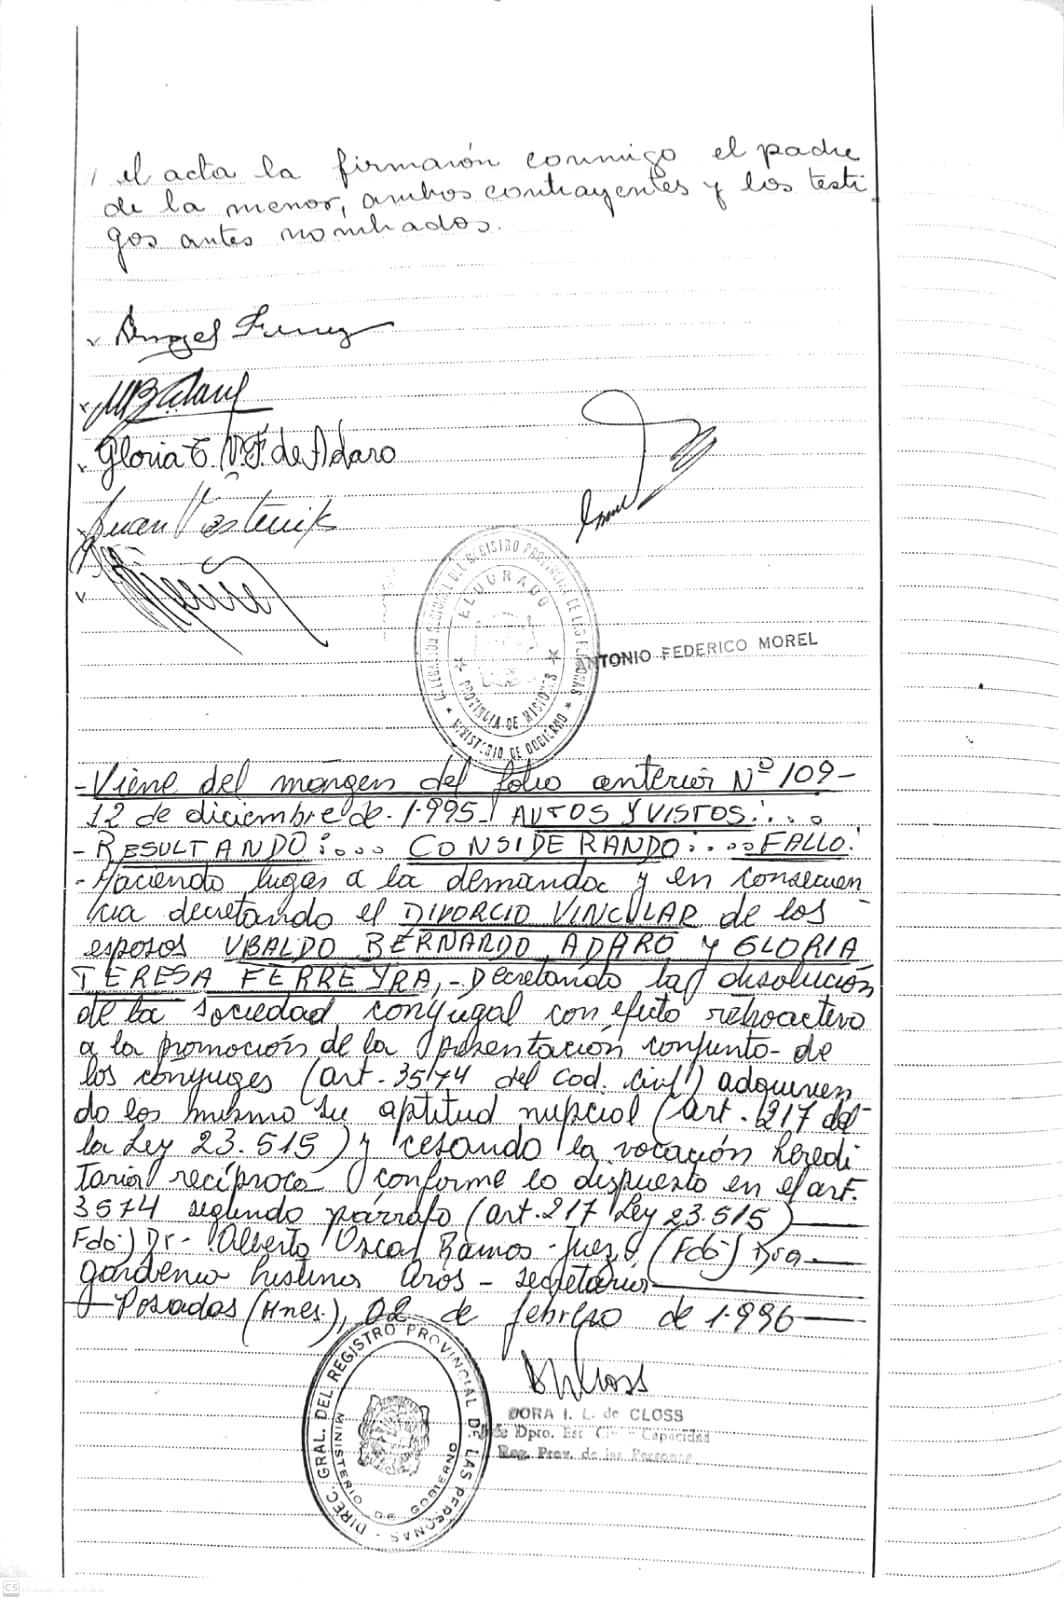 el acta la firmarón conmigo el padre
de la menor, ambos contrayentes y los testi
gos antes nombrados.
Gloria T. F. de Adaro
DELEGACION REGIONAL DEL REGISTRO PROVINCIAL DE LAS PERSONAS
ELDORADO
PROVINCIA DE MISIONES
MINISTERIO DE GOBIERNO
ANTONIO FEDERICO MOREL
-Viene del margen del folio anterior Nº 109-
12 de diciembre de 1.995- AUTOS Y VISTOS:...
-RESULTANDO:.... CONSIDERANDO:....FALLO:
-Haciendo lugar a la demanda y en consecuen
cia decretando el DIVORCIO VINCULAR de los
esposos UBALDO BERNARDO ADARO Y GLORIA
TERESA FERREYRA,-Decretando la disolución
de la sociedad conyugal con efecto retroactivo
a la promoción de la presentación conjunta- de
los cónyuges (art. 3574 del Cod. Civil) adquirien
do los mismo su aptitud nupcial (art. 217 de
la Ley 23.515) y cesando la vocación heredi
taria recíproca conforme lo dispuesto en el art.
3574 segundo párrafo (art. 217 Ley 23.515)
Fdo:) Dr. Alberto Oscar Ramos- Juez (Fdo:) Dra
Aros - secretario
Posadas (Mnes.), 02 de febrero de 1.996
DIREC. GRAL. DEL REGISTRO PROVINCIAL DE LAS PERSONAS
MINISTERIO DE GOBIERNO
DORA I. L. de CLOSS
Dpto. Est. Civil y Capacidad
Reg. Prov. de las Personas
CS